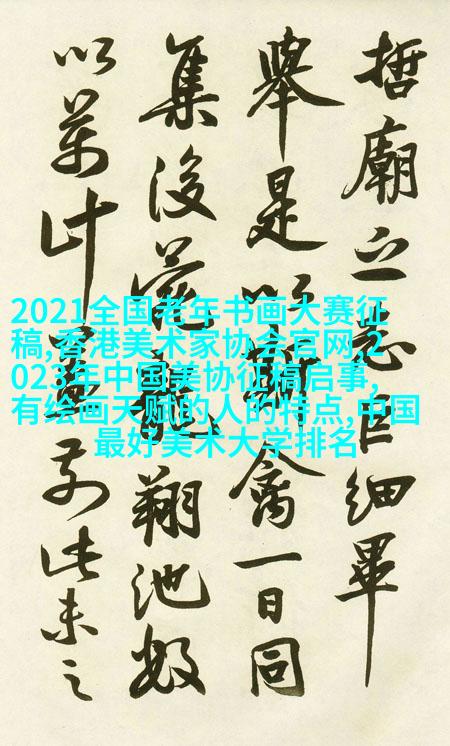 哲廟之志巨細畢
舉是以禽一日同
集後苑龍翔池數
以萬計前此未之
2021全国老年书画大赛征
稿,香港美术家协会官网,2
023年中国美协征稿启事,
有绘画天赋的人的特点,中国
最好美术大学排名